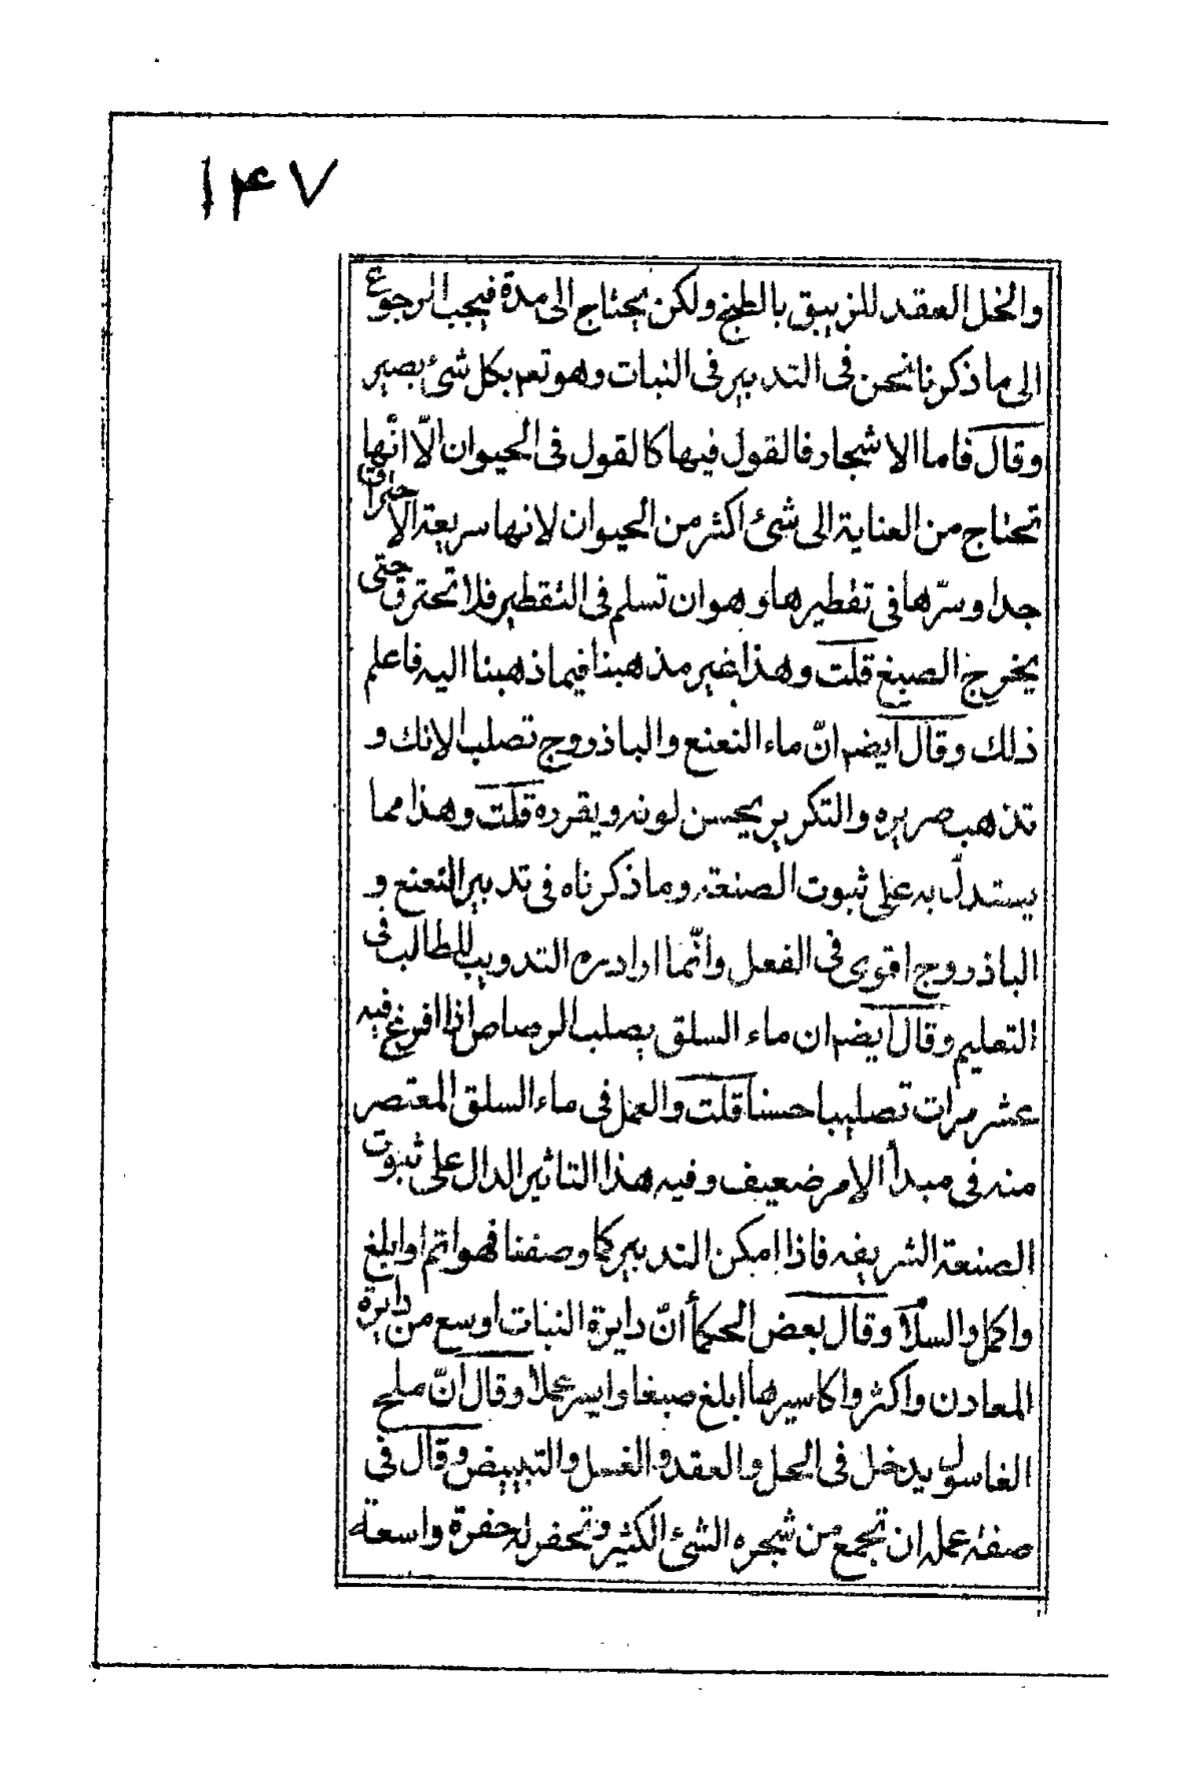 ١۴٧
والخل العقد للزيبق بالطبخ ولكن يحتاج الى مدة فيجب الرجوع
الى ما ذكرنا نحن فى التدبير فى النبات وهو تعم بكل شئ بصير
وقال فاما الاشجار فالقول فيها كالقول فى الحيوان الّا انّها
تحتاج من العناية الى شئ اكثر من الحيوان لانها سريعة الاحتراق
جدا وسرّها فى تقطيرها وهو ان تسلم فى التقطير فلا تحترق حتى
يخرج الصبغ قلت وهذا غير مذهبنا فيما ذهبنا اليه فاعلم
ذلك وقال ايضم انّ ماء النعنع والباذروج تصلب الانك و
تذهب صريره والتكرير يحسن لونه ويقرده قلت وهذا مما
يستدلّ به على ثبوت الصنعة وما ذكرناه فى تدبير النعنع و
الباذروج اقوى فى الفعل وانّما اراد بره التدويب للطالب فى
التعليم وقال ايضم ان ماء السلق يصلب الرصاص اذا افرغ فيه
عشر مرات تصليبا حسنا قلت والعمل فى ماء السلق المعتصر
منه فى مبدأ الامر ضعيف وفيه هذا التاثير الدال على ثبوت
الصنعة الشريفه فاذا امكن التدبير كما وصفنا فهو اتم او ابلغ
واكمل والسلام وقال بعض الحكمأ انّ دايرة النبات اوسع من دايرة
المعادن واكثر واكاسيرها ابلغ صبغا وايسر عملا وقال انّ ملح
الغاسول يدخل فى الحل والعقد والغسل والتبييض وقال فى
صفة عمله ان تجمع من شجره الشئ الكثير وتحفر له حفرة واسعة